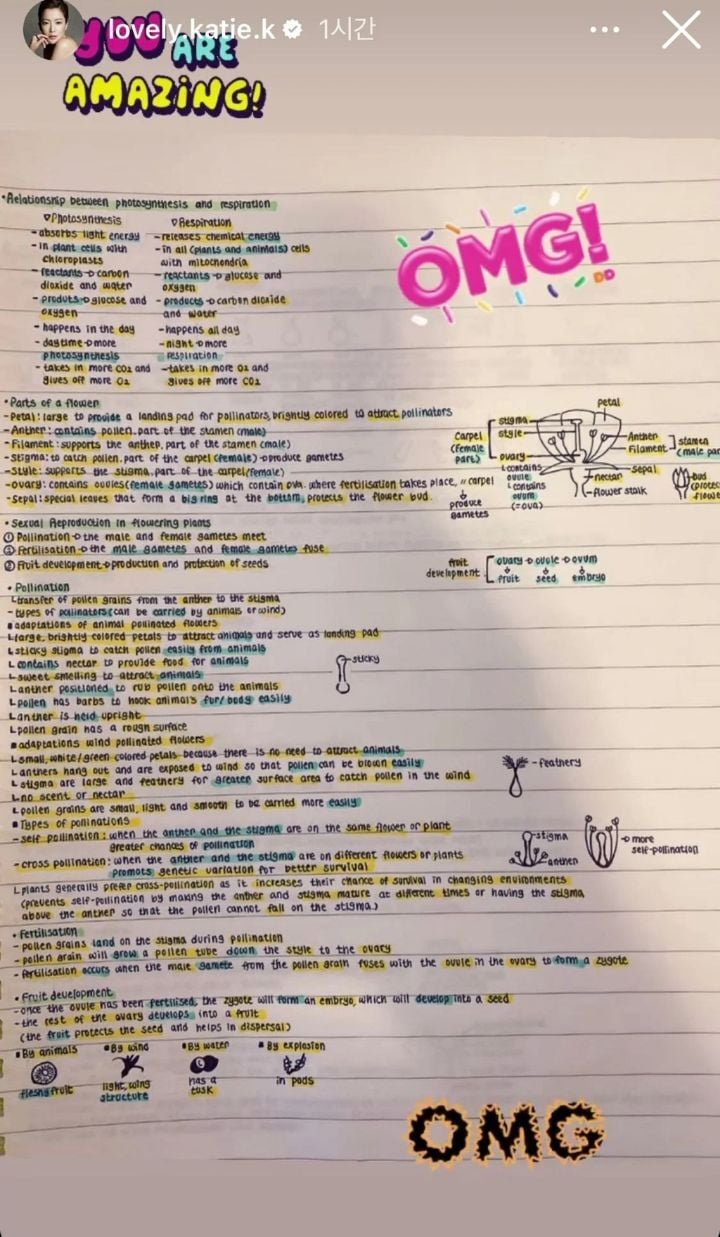 lovely.katie.k 1시간
YOU ARE
AMAZING!
OMG!
•Relationship between photosynthesis and respiration
▽Photosynthesis
- absorbs light energy
- in plant cells with
chloroplasts
- reactants → carbon
dioxide and water
- produts → glocose and
oxygen
- happens in the day
- daytime → more
photosynthesis
- takes in more CO2 and
gives off more O2
▽Respiration
- releases chemical energy
- in all (plants and animals) cells
with mitochondria
- reactants → glucose and
oxygen
- products → carbon dioxide
and water
- happens all day
- night → more
respiration
- takes in more O2 and
gives off more CO2
•Parts of a flower
- Petal : large to provide a landing pad for pollinators, brightly colored to attract pollinators
- Anther : contains pollen. part of the stamen (male)
- Filament : supports the anther. part of the stamen (male)
- Stigma : to catch pollen. part of the carpel (female) → produce gametes
- Style : supports the stigma. part of the carpel (female)
- Ovary : contains ovules (female gametes) which contain ova. where fertilisation takes place, " carpel
- Sepal : special leaves that form a big ring at the bottom, protects the flower bud.
produce
gametes
Petal
stigma
style
Carpel
(female
part)
ovary
└contains
ovule
└contains
ovum
(=ova)
Anther
Filament
stamen
(male par
sepal
nectar
flower stalk
bud
(protec
flowe
• Sexual Reproduction in flowering plants
① Pollination → the male and female gametes meet
② Fertilisation → the male gametes and female gametes fuse
③ Fruit development → production and protection of seeds
fruit
development
ovary → ovule → ovum
fruit seed embryo
• Pollination
└transfer of pollen grains from the anther to the stigma
- types of pollinators (can be carried by animals or wind)
▪adaptations of animal pollinated flowers
└large, brightly colored petals to attract animals and serve as landing pad
└sticky stigma to catch pollen easily from animals
└contains nectar to provide food for animals
└sweet smelling to attract animals
└anther positioned to rub pollen onto the animals
└pollen has barbs to hook animal's fur/body easily
└anther is held upright
└pollen grain has a rough surface
sticky
▪adaptations wind pollinated flowers
└small, white/green colored petals because there is no need to attract animals
└anthers hang out and are exposed to wind so that pollen can be blown easily
└stigma are large and feathery for greater surface area to catch pollen in the wind
└no scent or nectar
└pollen grains are small, light and smooth to be carried more easily
- feathery
▪Types of pollinations
- self pollination : when the anther and the stigma are on the same flower or plant
greater chances of pollination
- cross pollination : when the anther and the stigma are on different flowers or plants
promots genetic variation for better survival
└plants generally prefer cross-pollination as it increases their chance of survival in changing environments
(prevents self-pollination by making the anther and stigma mature at different times or having the stigma
above the anther so that the pollen cannot fall on the stigma.)
stigma
anther
→ more
self-pollination
• Fertilisation
- pollen grains land on the stigma during pollination
- pollen grain will grow a pollen tube down the style to the ovary
- fertilisation occurs when the male gamete from the pollen grain fuses with the ovule in the ovary to form a zygote
• Fruit development
- once the ovule has been fertilised, the zygote will form an embryo, which will develop into a seed
- the rest of the ovary develops into a fruit
(the fruit protects the seed and helps in dispersal)
▪By animals
fleshy fruit
▪By wind
light, wing
structure
▪By water
has a
tusk
▪By explosion
in pods
OMG